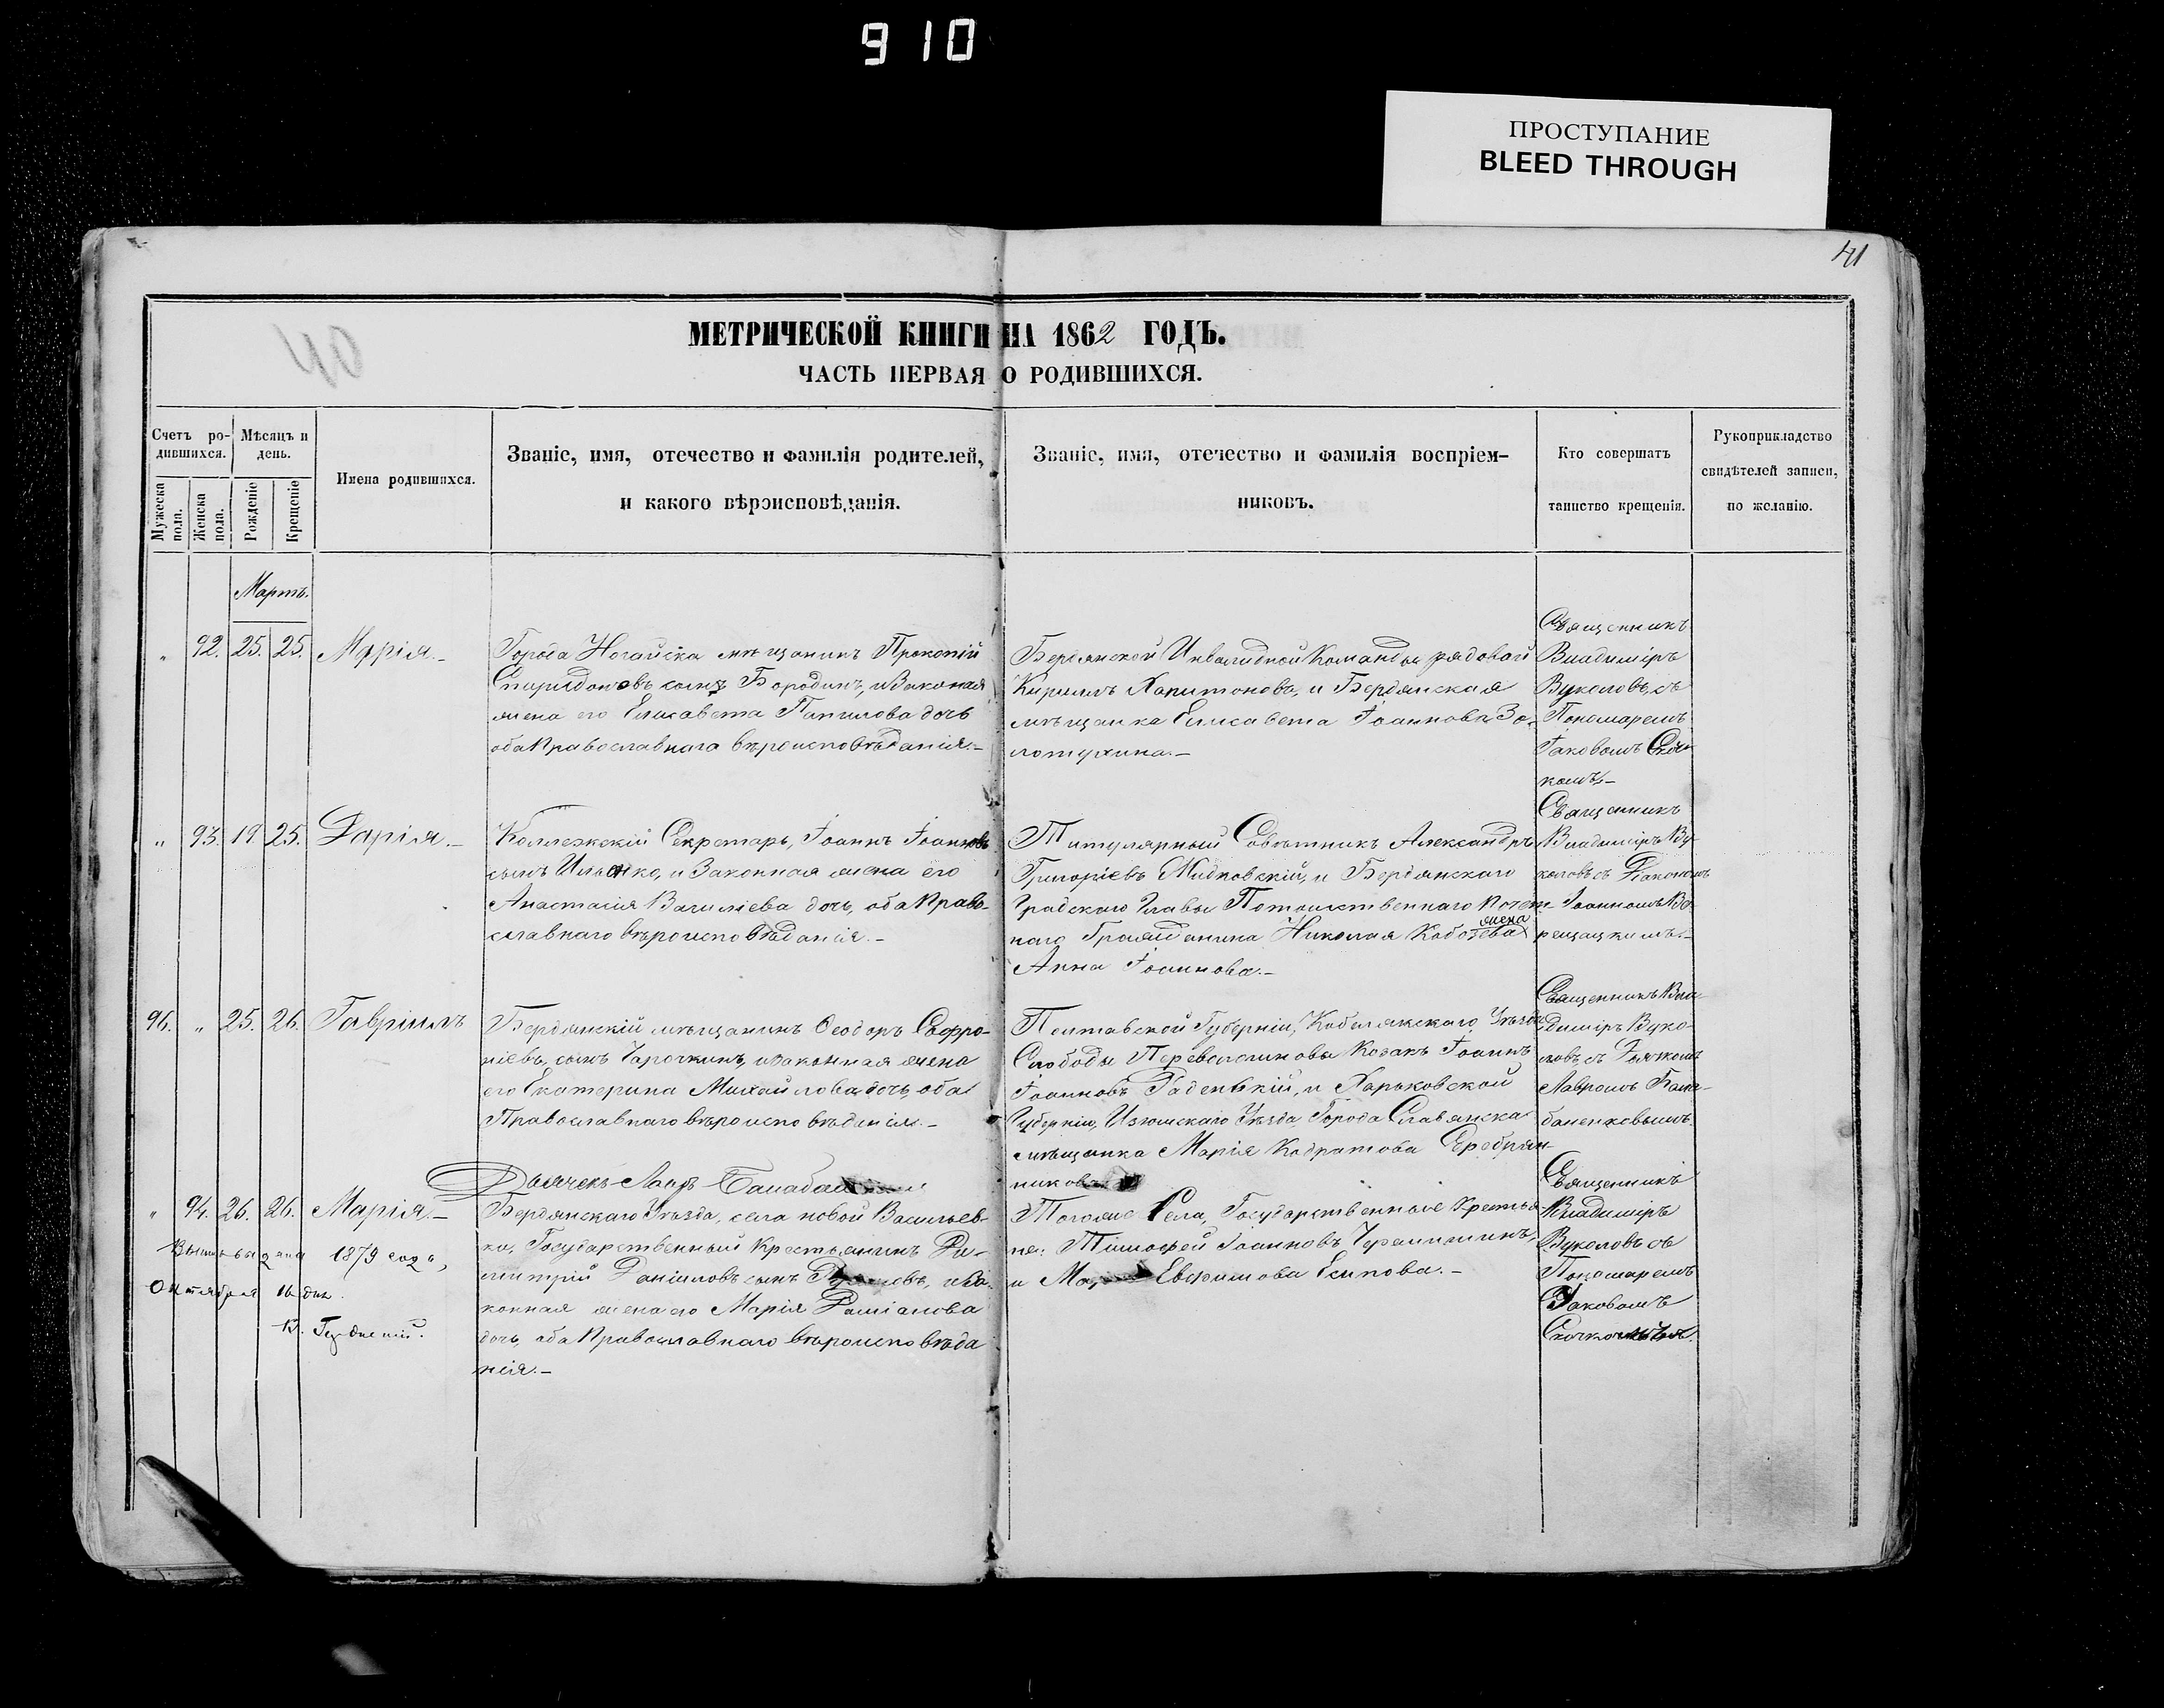 910
ПРОСТУПАНИЕ
BLEED THROUGH
41
МЕТРИЧЕСКОЙ КНИГИ НА 1862 ГОДЪ.
ЧАСТЬ ПЕРВАЯ О РОДИВШИХСЯ.
Счетъ ро-
дившихся.
Мужеска пола.
Женска пола.
Мѣсяцъ и
день.
Рожденіе
Крещеніе
Имена родившихся.
Званіе, имя, отечество и фамилія родителей,
и какого вѣроисповѣданія.
Званіе, имя, отечество и фамилія воспріем-
никовъ.
Кто совершалъ
таинство крещенія.
Рукоприкладство
свидѣтелей записи,
по желанію.
Мартъ.
„ 92. 25. 25. Марія.-
Города Ногайска мѣщанинъ Прокопій
Спиридоновъ сынъ Бородинъ, и Законная
жена его Елисавета дочь
оба Православнаго вѣроисповѣданія.-
Бердянской Инвалидной Команды рядовой
Кириллъ Харитоновъ, и Бердянская
мѣщанка Елисавета Іоаннова Зо-
лотухина.-
Священникъ
Владиміръ
Вуколовъ, съ
Пономаремъ
Іаковомъ Скоч-
комъ.-
„ 93. 19. 25. Дарія.-
Коллежскій Секретарь, Іоаннъ Іоанновъ
сынъ Ильенко, и Законная жена его
Анастасія Василіева дочь, оба Право-
славнаго вѣроисповѣданія.-
Титулярный Совѣтникъ Александръ
Григоріевъ Мидковскій, и Бердянскаго
Градскаго Главы Потомственнаго Почет-
наго Гражданина Николая Кобозева жена
Анна Іоаннова.-
Священникъ
Владиміръ Ву-
коловъ съ Діакономъ
Іоанномъ
96. „ 25. 26. Гавріилъ
Бердянскій мѣщанинъ Ѳеодоръ Софро-
ніевъ, сынъ Чарочкинъ, и законная жена
его Екатерина Михайлова дочь, оба
Православнаго вѣроисповѣданія.-
Полтавской Губерніи, Кобелякскаго Уѣзда
Слободы Переволочновы Козакъ Іоаннъ
Іоанновъ Гаденькій, и Харьковской
Губерніи, Изюмскаго Уѣзда Города Славянска
мѣщанка Марія Кодратова Серебрян-
никова
Священникъ Вла-
диміръ Вуко-
ловъ съ Дьячкомъ
Лавромъ Бала-
баненковымъ.
Дьячекъ Лавръ
„ 94. 26. 26. Марія.-
Бердянскаго Уѣзда, села новой Васильев-
ки, Государственный Крестьянинъ Ди-
митрій Даніиловъ сынъ и За-
конная жена его Марія Даміанова
дочь, оба Православнаго вѣроисповѣда
нія.-
Тогоже Села, Государственные Крестья-
не: Тимоѳей Іоанновъ
и Евфимова Есипова.-
Священникъ
Владиміръ
Вуколовъ съ
Пономаремъ
Іаковомъ
1879 года,
Октября 16 дня.